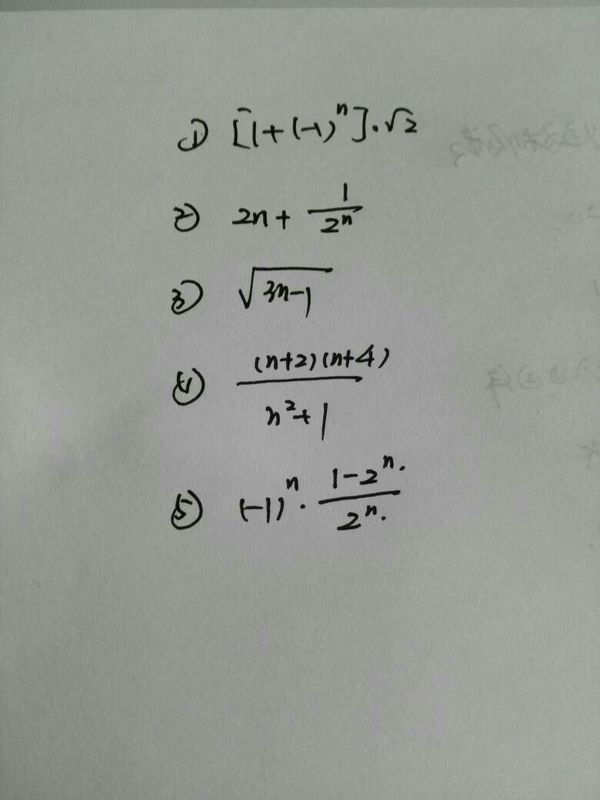 ① [1+(-1)^n]·√2
② 2n + 1/2^n
③ √(3n-1)
④ (n+2)(n+4)/(n²+1)
⑤ (-1)^n · (1-2^n.)/(2^n.)